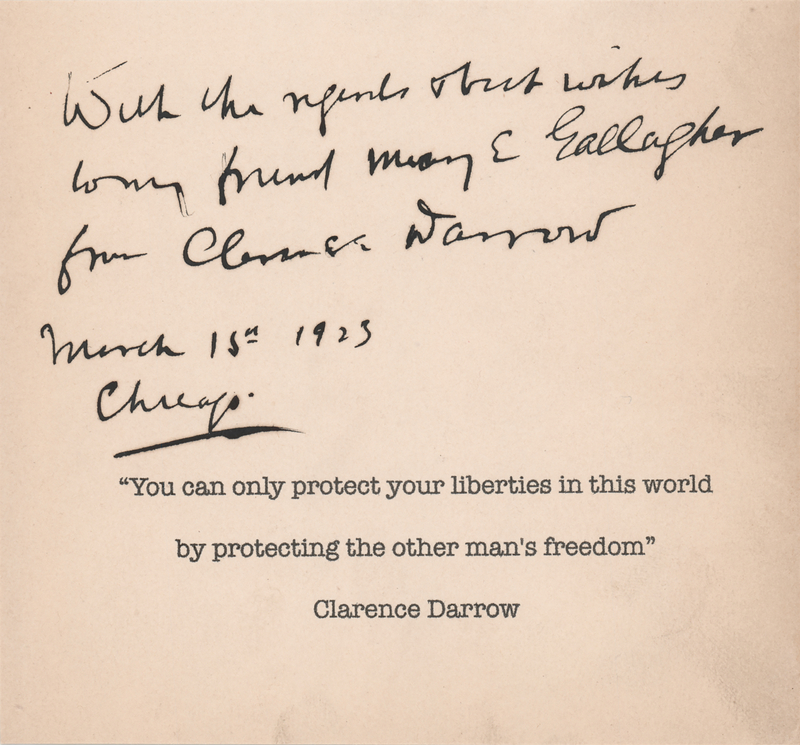 With the regards & best wishes
to my friend Mary E Gallagher
from Clarence Darrow
March 15th 1923
Chicago.
“You can only protect your liberties in this world
by protecting the other man's freedom”
Clarence Darrow